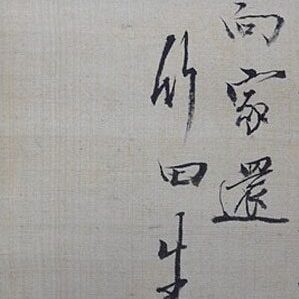 向家還
竹田生